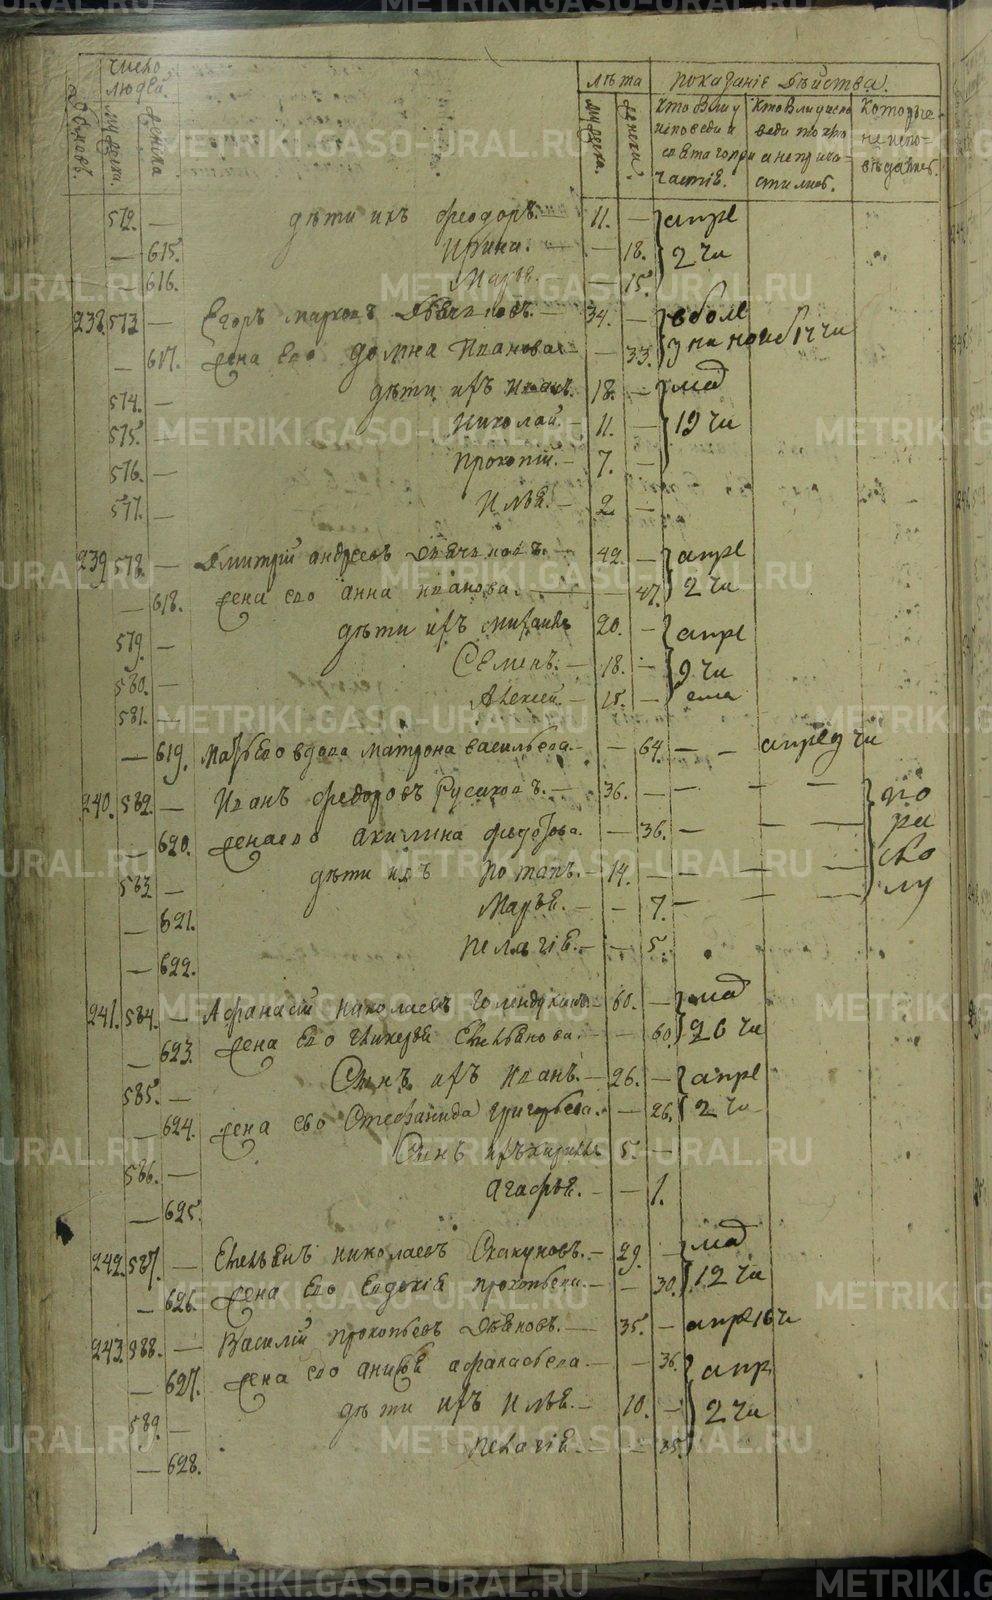 число людей. лѣта показанiе дѣйства.
дворовъ. мужеска. женска мужеска. женска. кто были у исповеди и святаго причастiя. кто были у исповеди токмо а не причастились. которые не исповѣдались.
572. — дѣти ихъ феодоръ. 11. — апре
— 615. Ирина. — — 18. 2 чи
— 616. Марья. — 15.
238. 573 — Егоръ марковъ 34. —
— 617. жена его домна Иванова — 33.
574. — дѣти ихъ Иванъ. 18. — ма
575. — Николай. — 11. — 19 чи
576. — Прокопiй. — 7. —
577. — Илья. — 2 —
239 578. — Дмитрiй андреевъ — 49. — апре
— 618. жена его анна иванова. — — 47. 2 чи
579. — дѣти ихъ михаилъ 20. — апре
580. — Семенъ. — 18. — 9 чи
581. — Алексей. — 15. —
— 619. Мать его вдова матрона васильева. — — 64. — — апре 9 чи
240. 582. — Иванъ федоровъ Русаковъ. — 36. — — — — по
— 620. жена его акилина федотова. — 36. — — — ра
583 — дѣти ихъ Потапъ. — 14. — — — — ско
— 621. Марья. — — 7. — — — лу
— 622. Пелагiя. — — 5.
241. 584. — Афанасiй николаевъ Голендухинъ 60. — ма
— 623. жена его Гликерiя Емельянова. — — 60. 26 чи
585. — Сынъ ихъ Иванъ. — 26. — апре
— 624. жена его Стефанида григорьева. — 26. 2 чи
586. — Сынъ ихъ кирилъ 5. —
— 625. агафья. — — 1.
242. 587. — Емельянъ николаевъ Скакуновъ. — 29. — ма
— 626. жена его Евдокiя прокопьева. — — 30. 12 чи
243. 588. — Василiй прокопьевъ — 35. — апре 16 ч
— 627. жена его анисья афанасьева. — — 36. апр
589. — дѣти ихъ Илья. — 10. — 2 чи
— 628. Пелагiя. — — 35.
METRIKI.GASO-URAL.RU